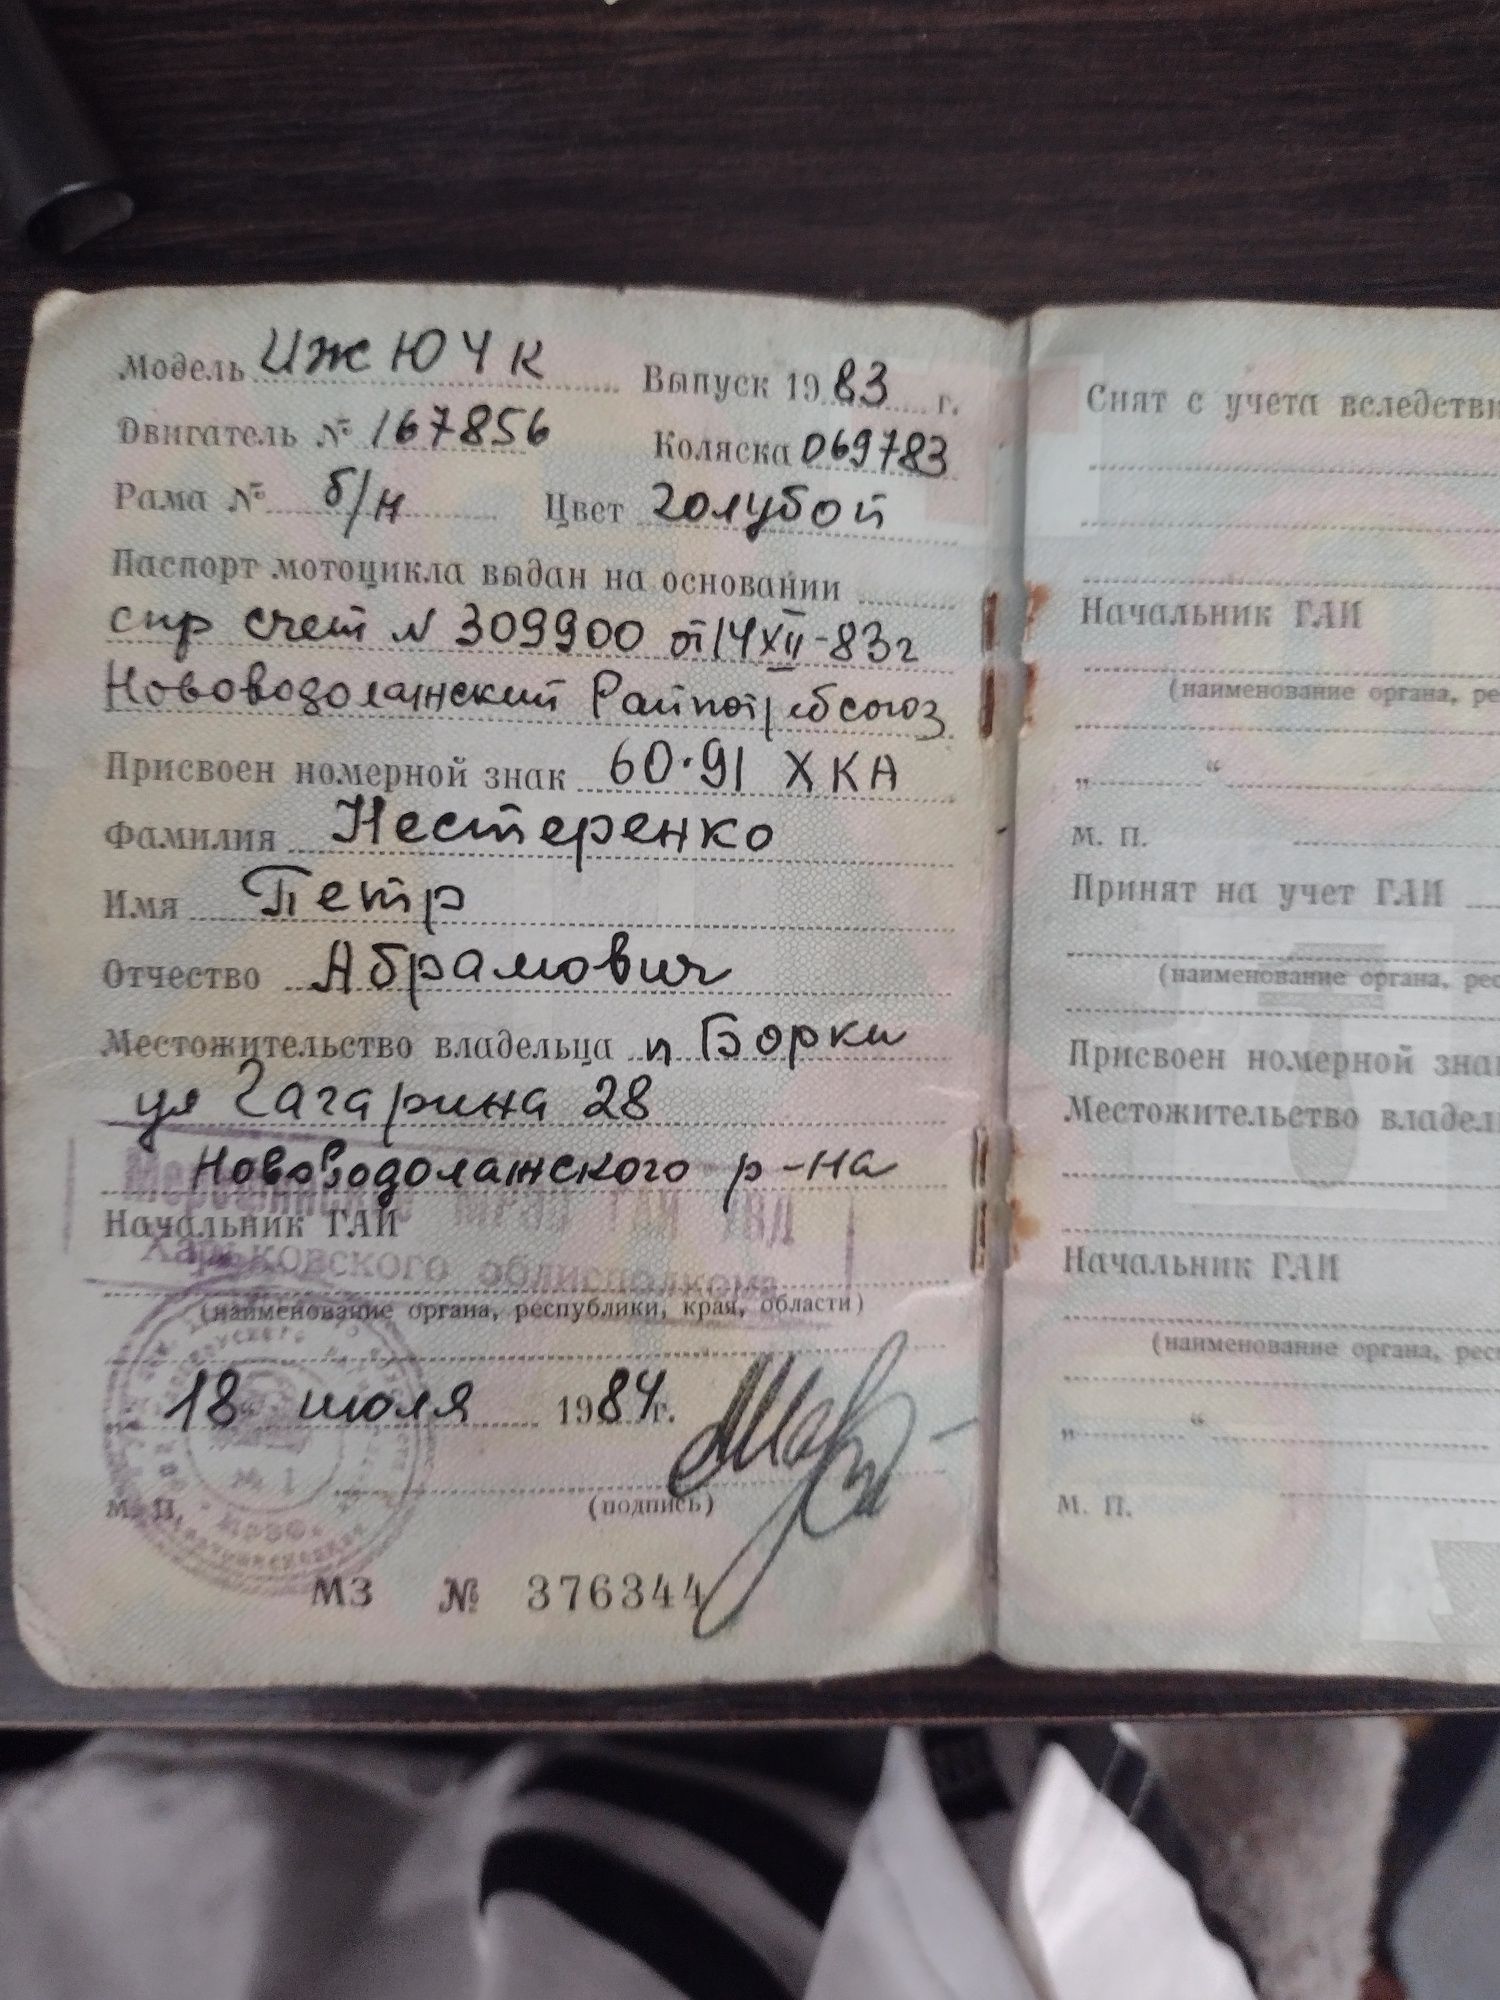 Модель ИЖ Ю4К Выпуск 1983 г.
Двигатель № 167856 Коляска 069783
Рама № б/н Цвет голубой
Паспорт мотоцикла выдан на основании
спр счет N 309900 от 14 XII-83г
Нововодолажский Райпотребсоюз
Присвоен номерной знак 60·91 ХКА
Фамилия Нестеренко
Имя Петр
Отчество Абрамович
Местожительство владельца п Борки
ул Гагарина 28
Нововодолажского р-на
Мерефянское МРЭО ГАИ УВД
Начальник ГАИ
Харьковского облисполкома
(наименование органа, республики, края, области)
„18“ июля 1984г.
№ 1
М. П. (подпись)
МЗ № 376344
Снят с учета вследстви
Начальник ГАИ
(наименование органа, рес
„ “
М. П.
Принят на учет ГАИ
(наименование органа, рес
Присвоен номерной знак
Местожительство владель
Начальник ГАИ
(наименование органа, рес
„ “
М. П.